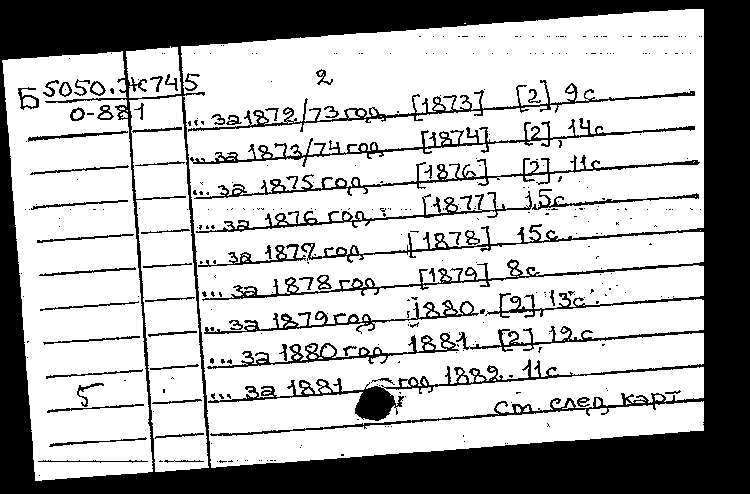 2
Б 5050.Ж745
О-881
... за 1872/73 год. [1873] [2], 9с.
... за 1873/74 год. [1874] [2], 14с
... за 1875 год. [1876] [2], 11с
... за 1876 год. [1877]. 15с
... за 1877 год [1878]. 15с.
... за 1878 год. [1879] 8с
... за 1879 год 1880. [2], 13с.
... за 1880 год 1881. [2], 12.с
... за 1881 год, 1882. 11с
5
См. след карт